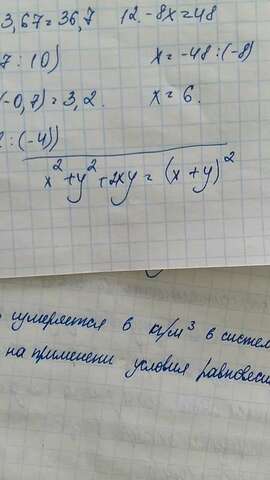 3,67=36,7 12.-8x=48
7:10) x=-48:(-8)
(-0,7)=3,2. x=6.
:(-4))
x²+y²+2xy=(x+y)²
измеряется в кг/м³ в систем
на применени условия равновеси